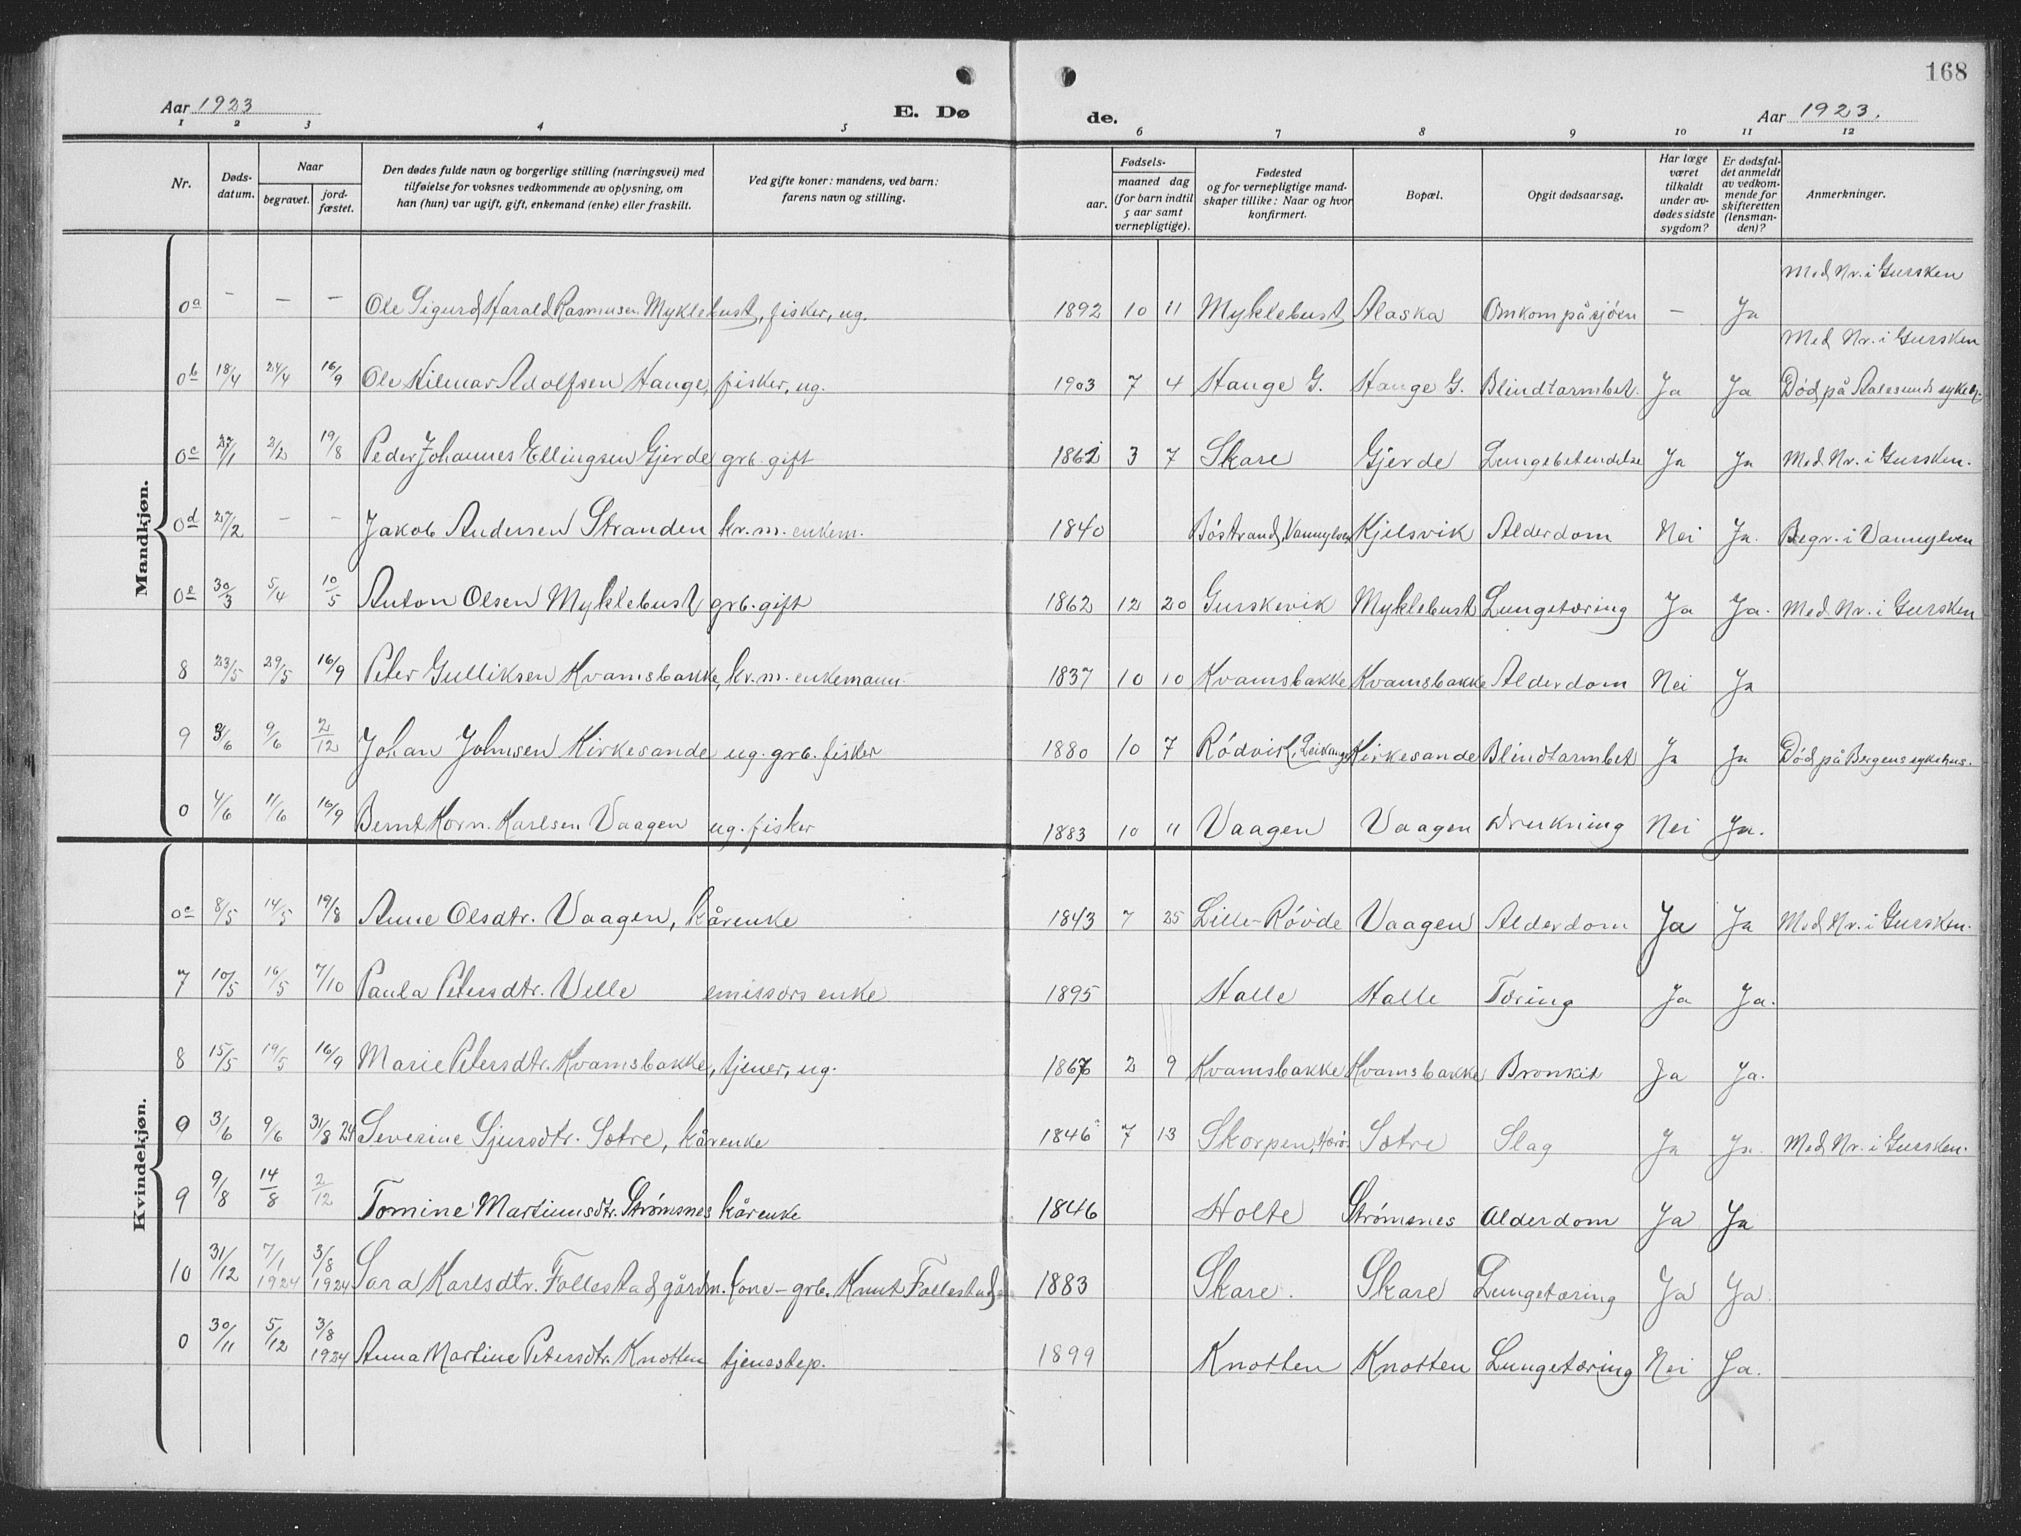 168
Aar 1923 E. Dø de. Aar 1923.
1 2 3 4 5 6 7 8 9 10 11 12
Nr. Døds-datum. Naar begravet. jord-fæstet. Den dødes fulde navn og borgerlige stilling (næringsvei) med tilføielse for voksnes vedkommende av oplysning, om han (hun) var ugift, gift, enkemand (enke) eller fraskilt. Ved gifte koner: mandens, ved barn: farens navn og stilling. Fødsels- aar. maaned dag (for barn indtil 5 aar samt vernepligtige). Fødested og for vernepligtige mand-skaper tillike: Naar og hvor konfirmert. Bopæl. Opgit dødsaarsag. Har læge været tilkaldt under av-dødes sidste sygdom? Er dødsfal-det anmeldt av vedkom-mende for skifteretten (lensman-den)? Anmerkninger.
Mandkjøn.
0a – – – Ole Sigurd Harald Rasmusen Myklebust, fisker, ug. 1892 10 11 Myklebust Alaska Omkom på sjøen – Ja Med Nr. i Gursken
0b 18/4 24/4 16/9 Ole Hilmar Adolfsen Hauge, fisker, ug. 1903 7 4 Hauge G. Hauge G. Blindtarmbet. Ja Ja Med Nr. i Gursken Død på Aalesunds sykeh.
0c 27/1 2/2 19/8 Peder Johannes Ellingsen Gjerde grb. gift 1862 3 7 Skare Gjerde Lungebetendelse Ja Ja Med Nr. i Gursken.
0d 27/2 – – Jakob Andersen Stranden kr. m. enkem. 1840 Böstrand, Vannylven Kjelsvik Alderdom Nei Ja. Begr. i Vannylven
0e 30/3 5/4 10/5 Anton Olsen Myklebust grb. gift 1862 12 20 Gurskevik Myklebust Lungetæring Ja Ja. Med Nr. i Gursken
8 23/5 29/5 16/9 Peter Gulliksen Kvamsbakke, kr. m. enkemann. 1837 10 10 Kvamsbakke Kvamsbakke Alderdom Nei Ja
9 3/6 9/6 2/12 Johan Johnsen Kirkesande ug. grb. fisker 1880 10 7 Rödvik, Leikanger Kirkesande Blindtarmbet Ja Ja Død på Bergens sykehus.
0 4/6 11/6 16/9 Bernt Korn. Karlsen Vaagen ug. fisker 1883 10 11 Vaagen Vaagen Drukning Nei Ja.
Kvindekjøn.
0c 8/5 14/5 19/8 Anne Olsdtr. Vaagen, kårenke 1843 7 25 Lille-Rövde Vaagen Alderdom Ja Ja Med Nr. i Gursken.
7 10/5 16/5 7/10 Paula Petersdtr. Velle emissærs enke 1895 Halle Halle Tæring Ja Ja.
8 15/5 19/5 16/9 Marie Petersdtr. Kvamsbakke, tjener, ug. 1867 2 9 Kvamsbakke Kvamsbakke Bronkit Ja Ja.
9 3/6 9/6 31/8 24 Severine Sjursdtr. Sætre, kårenke 1846 7 13 Skorpen, Herö Sætre Slag Ja Ja. Med Nr. i Gursken.
9 9/8 14/8 2/12 Tomine Martinusdtr. Strømsnes kårenke 1846 Holte Strømsnes Alderdom Ja Ja
10 31/12 7/1 1924 3/8 1924 Sara Karlsdtr. Follestad, gårdm. kone – grb. Knut Follestad, 1883 Skare. Skare Lungetæring Ja Ja
0 30/11 5/12 3/8 1924 Anna Martine Petersdtr. Knotten tjenestep. 1899 Knotten Knotten Lungetæring Nei Ja.